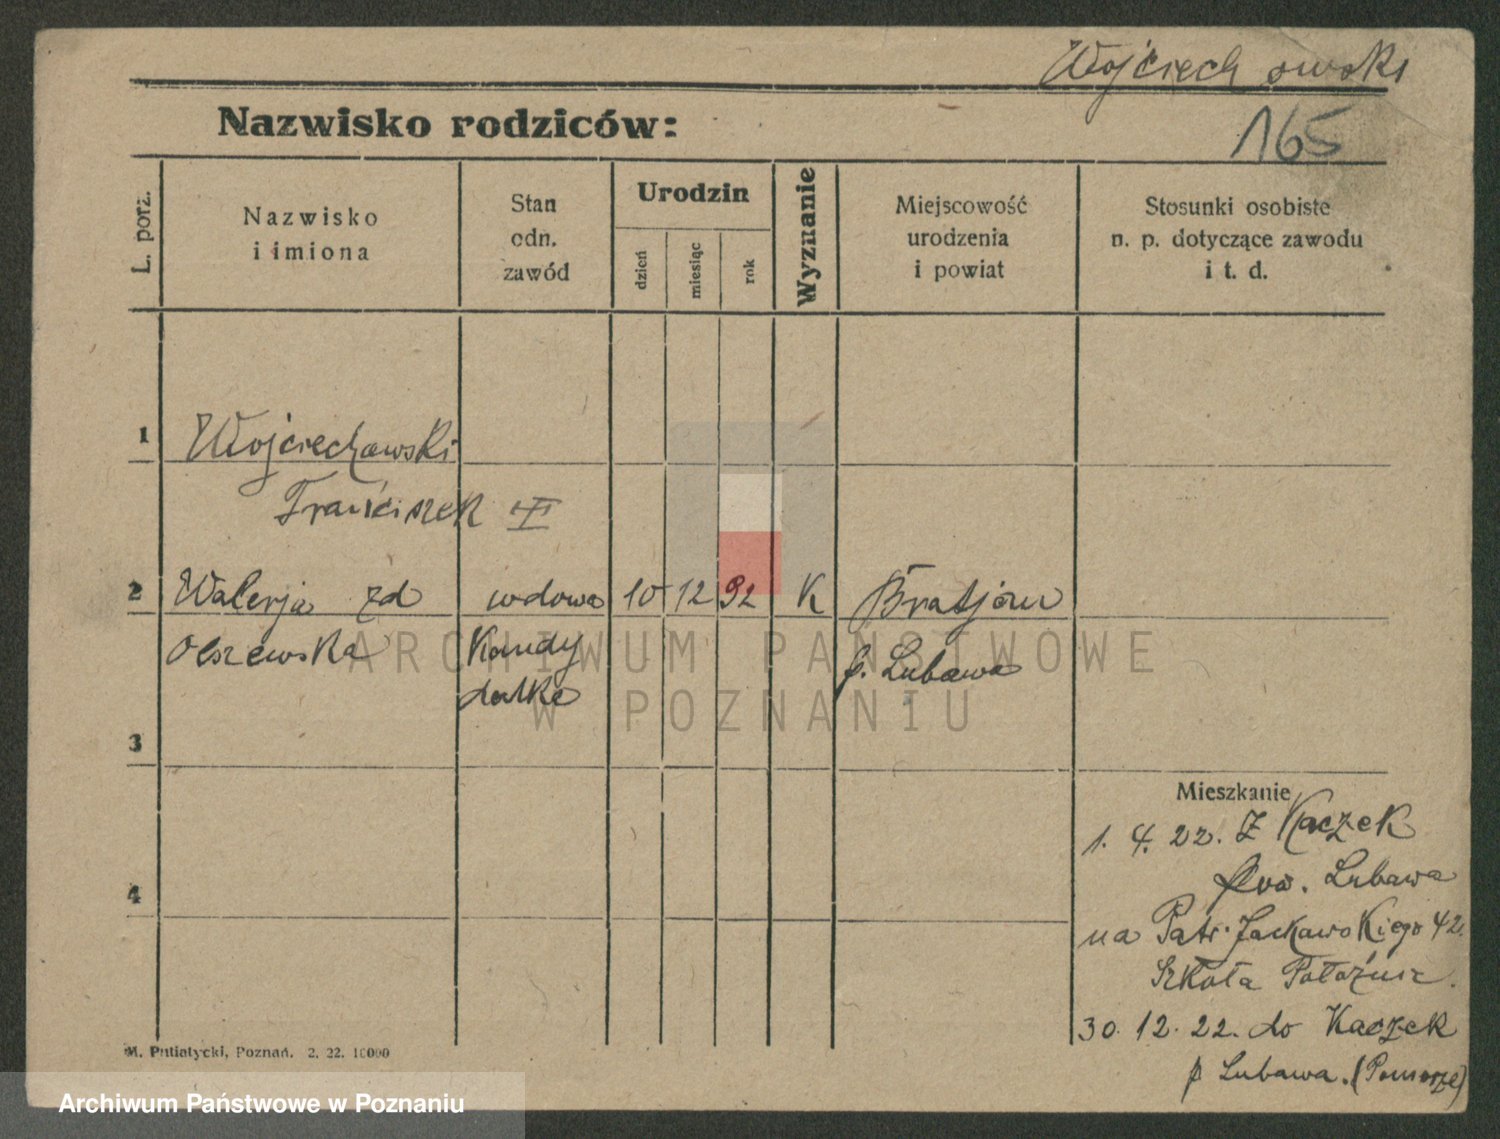 Wojciechowski
Nazwisko rodziców:
165
L. porz.
Nazwisko
i imiona
Stan
odn.
zawód
Urodzin
dzień
miesiąc
rok
Wyznanie
Miejscowość
urodzenia
i powiat
Stosunki osobiste
n. p. dotyczące zawodu
i t. d.
1 Wojciechowski
Franciszek
2 Walerja zd wdowa 10 12 92 K Bratjan
Olszewska Kandy p. Lubawa
datka
ARCHIWUM PAŃSTWOWE
W POZNANIU
3
Mieszkanie
1. 4. 22. Z Kaczek
pow. Lubawa
4
na Patr. Jackowskiego 42.
Szkoła Położnic.
30. 12. 22. do Kaczek
p Lubawa. (Pomorze)
M. Putiatycki, Poznań. 2. 22. 10000
Archiwum Państwowe w Poznaniu